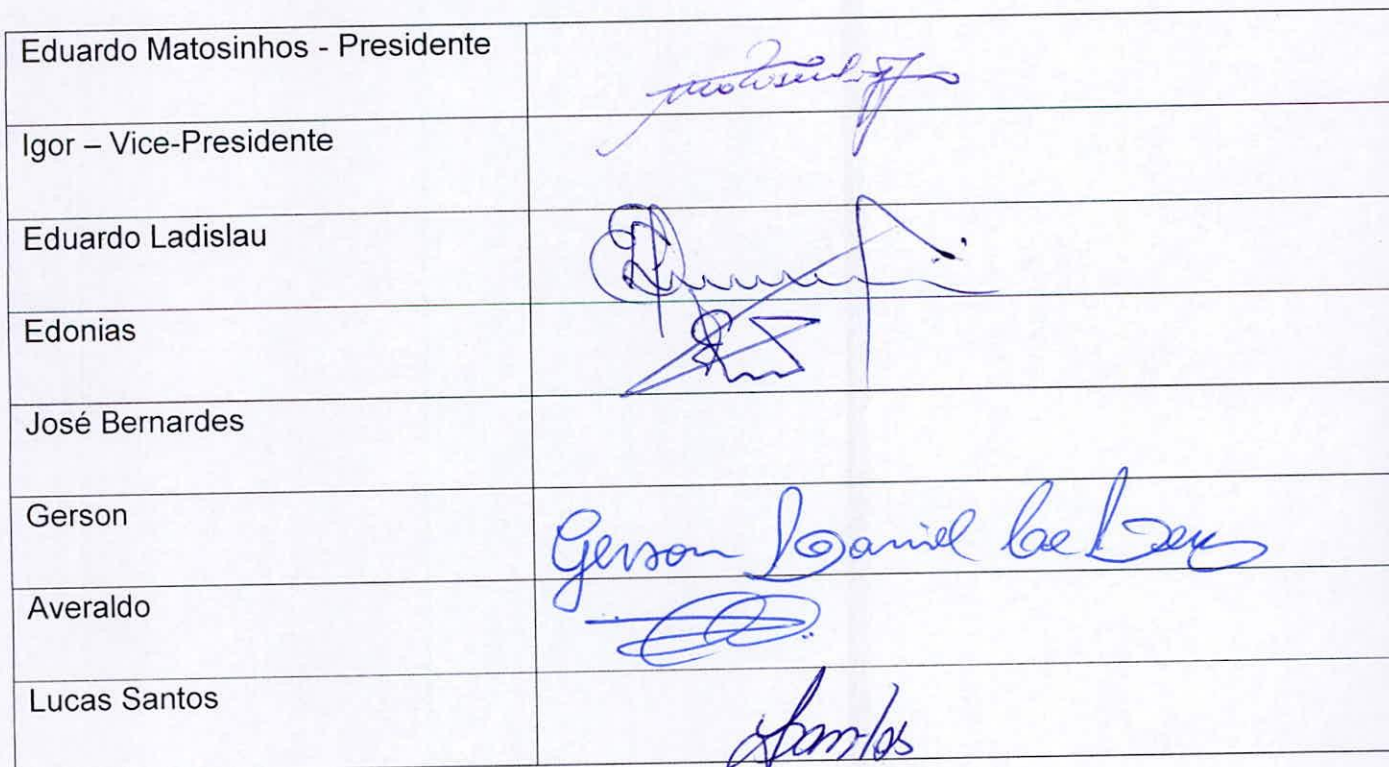 Eduardo Matosinhos - Presidente
Igor – Vice-Presidente
Eduardo Ladislau
Edonias
José Bernardes
Gerson
Gerson Daniel
Averaldo
Lucas Santos
Santos